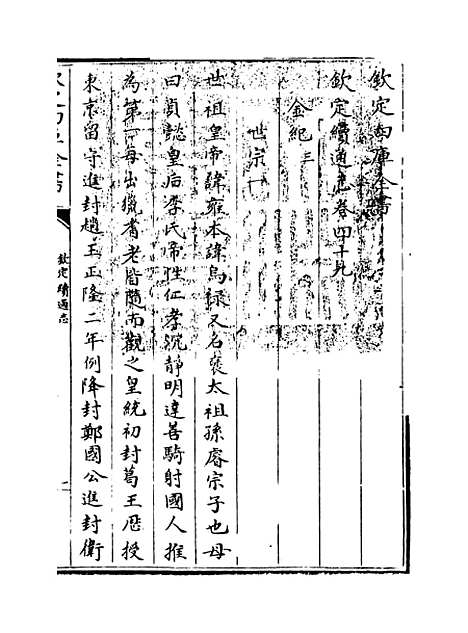 欽定四庫全書
欽定續通志卷四十九
金紀三
世宗一
世祖皇帝諱雍本諱烏祿又名褒太祖孫睿宗子也母
曰貞懿皇后李氏帝性仁孝沉靜明達善騎射國人推
為第一每出獵耆老皆隨而觀之皇統初封葛王歴授
東京留守進封趙王正隆二年例降封鄭國公進封衛
欽定續通志